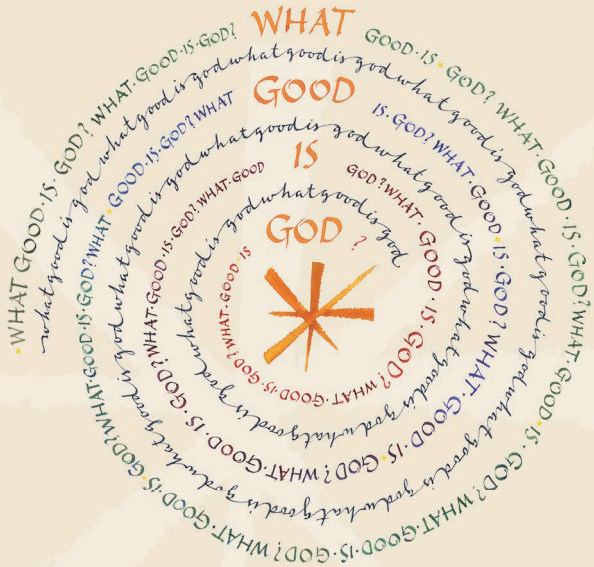 ·WHAT GOOD·IS·GOD? WHAT·GOOD·IS·GOD?
WHAT
GOOD·IS·GOD? WHAT·GOOD·IS·GOD? WHAT·GOOD·IS·GOD? WHAT·GOOD·IS·GOD? WHAT·GOOD·IS·GOD? WHAT·GOOD·IS·GOD? WHAT·GOOD·IS·GOD? WHAT
GOOD
IS·GOD? WHAT·GOOD·IS·GOD? WHAT·GOOD·IS·GOD? WHAT·GOOD·IS·GOD? WHAT·GOOD·IS·GOD? WHAT·GOOD
IS
GOD? WHAT·GOOD·IS·GOD? WHAT·GOOD·IS·GOD? WHAT·GOOD·IS
GOD?
whatgoodisgodwhatgoodisgodwhatgoodisgodwhatgoodisgodwhatgoodisgodwhatgoodisgodwhatgoodisgodwhatgoodisgodwhatgoodisgodwhatgoodisgodwhatgoodisgodwhatgoodisgodwhatgoodisgodwhatgoodisgodwhatgoodisgodwhatgoodisgod